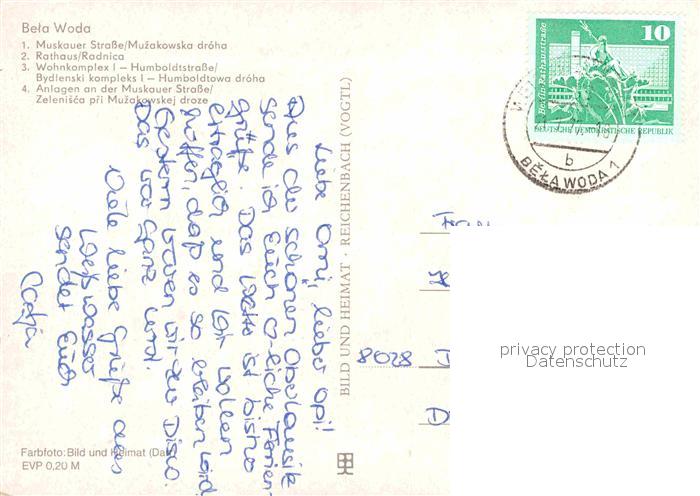 Beła Woda
1. Muskauer Straße/Mužakowska dróha
2. Rathaus/Radnica
3. Wohnkomplex I — Humboldtstraße/
Bydlenski kompleks I — Humboldtowa dróha
4. Anlagen an der Muskauer Straße/
Zelenišća při Mužakowskej droze
Liebe Omi, lieber Opi!
Aus der schönen Oberlausitz
sende ich Euch Ferien-
grüße. Das Wetter ist bisher
erträglich und wir wollen
hoffen, daß es so bleiben wird.
Gestern waren wir zur Disco.
Das war ganz nett.
Viele liebe Grüße aus
Weißwasser
sendet Euch
Katja
BILD UND HEIMAT · REICHENBACH (VOGTL)
Farbfoto: Bild und Heimat
EVP 0,20 M
Berlin, Rathausstraße
10
DEUTSCHE DEMOKRATISCHE REPUBLIK
b
BEŁA WODA 1
8028 D
D
privacy protection
Datenschutz